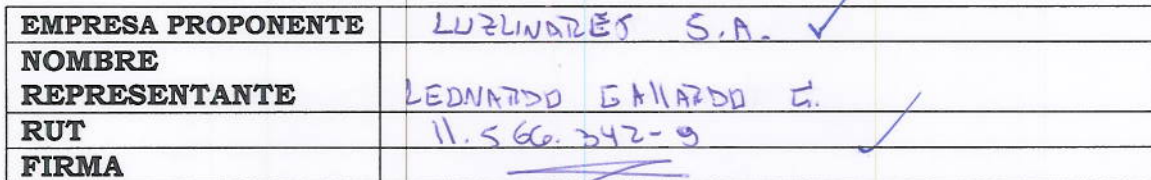 EMPRESA PROPONENTE LUZLINARES S.A.
NOMBRE
REPRESENTANTE LEONARDO GALLARDO G.
RUT 11.566.342-9
FIRMA